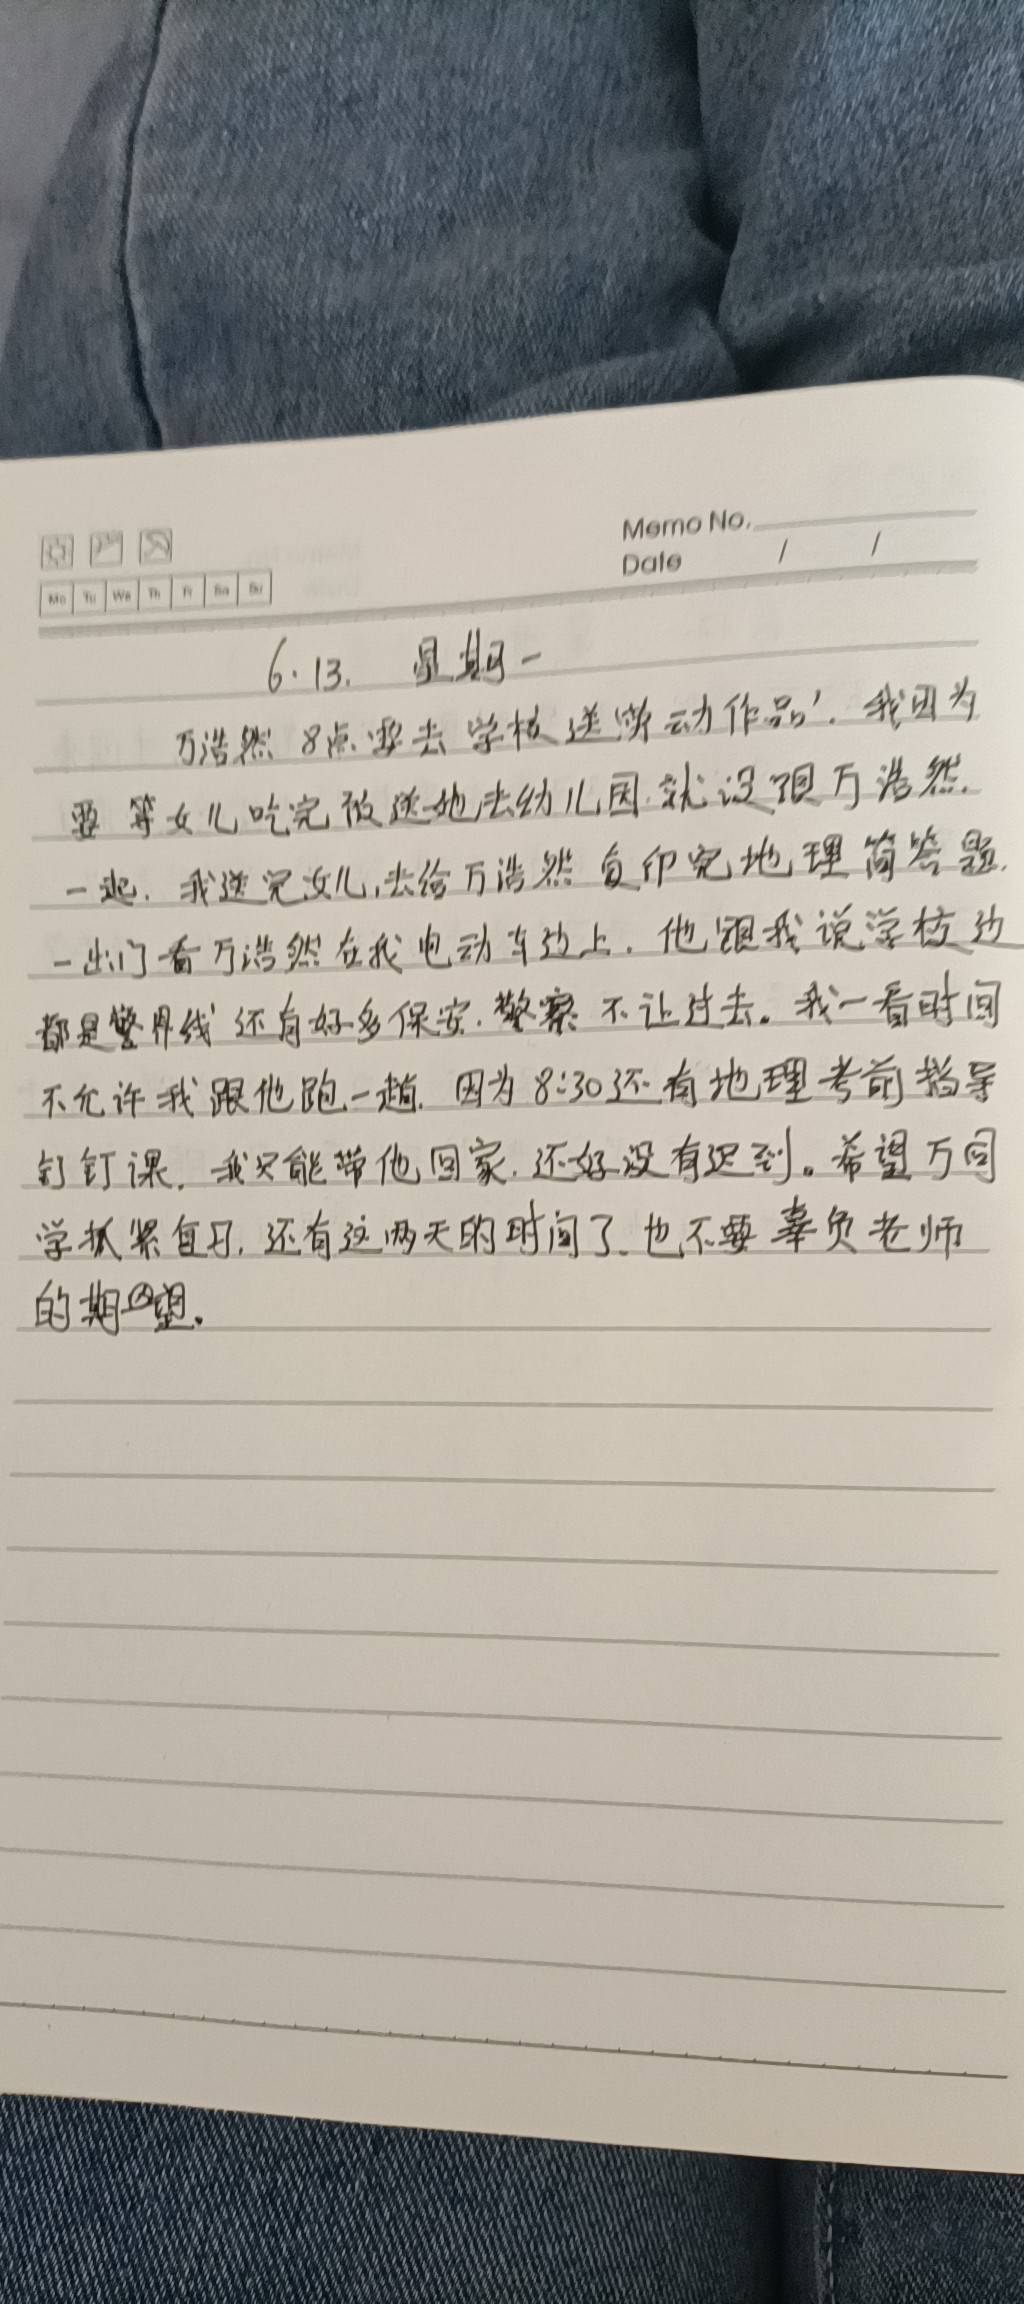 Memo No.
Date / /
Mo Tu We Th Fr Sa Su
6.13. 星期一
万浩然 8点要去学校送劳动作品'. 我因为
要等女儿吃完饭送她去幼儿园.就没跟万浩然.
一起. 我送完女儿,去给万浩然复印完地理简答题.
一出门看万浩然在我电动车边上. 他跟我说学校边
都是警界线 还有好多保安.警察不让过去。我一看时间
不允许我跟他跑一趟. 因为8:30还有地理考前指导
钉钉课. 我只能带他回家.还好没有迟到。希望万同
学抓紧复习, 还有这两天的时间了.也不要辜负老师
的期望.